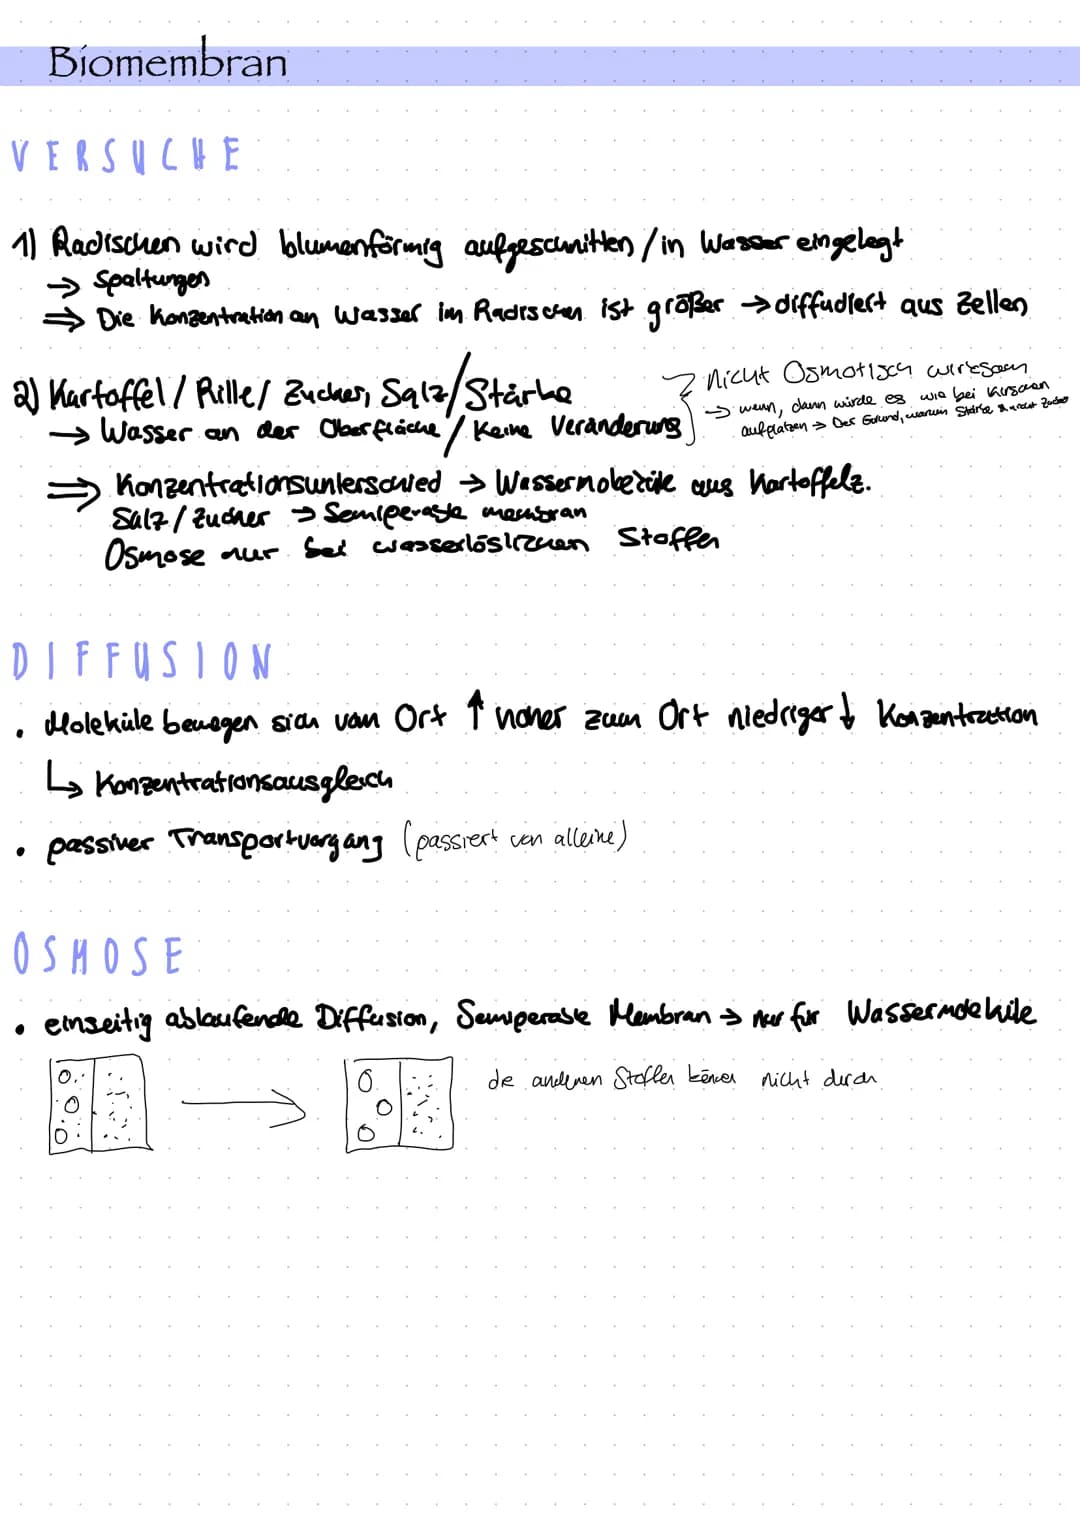 Biomembran
VERSUCHE
1) Radischen wird blumenförmig aufgeschnitten / in Wasser eingelegt
→ Spaltungen
⇒ Die Konzentration an Wasser im Radischen ist größer → diffudiert aus Zellen
2) Kartoffel / Rille / Zucker, Salz / Stärke
→ Wasser an der Oberfläche / Keine Veränderung
Nicht Osmotisch wirksam
→ wenn, dann würde es wie bei Kirschen
aufplatzen → Der Grund, warum Stärke & nicht Zucker
⇒ Konzentrationsunterschied → Wassermoleküle aus Kartoffelz.
Salz / Zucker → Semiperable membran
Osmose nur bei wasserlöslichen Stoffen
DIFFUSION
• Moleküle bewegen sich vom Ort ↑ hoher zum Ort niedriger ↓ Konzentration
↳ Konzentrationsausgleich
• passiver Transportvorgang (passiert von alleine)
OSMOSE
• einseitig ablaufende Diffusion, Semiperable Membran → nur für Wassermoleküle
de anderen Stoffen können nicht durch